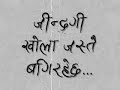 जीन्दगी
खोला जस्तै
बगिरहेछ...